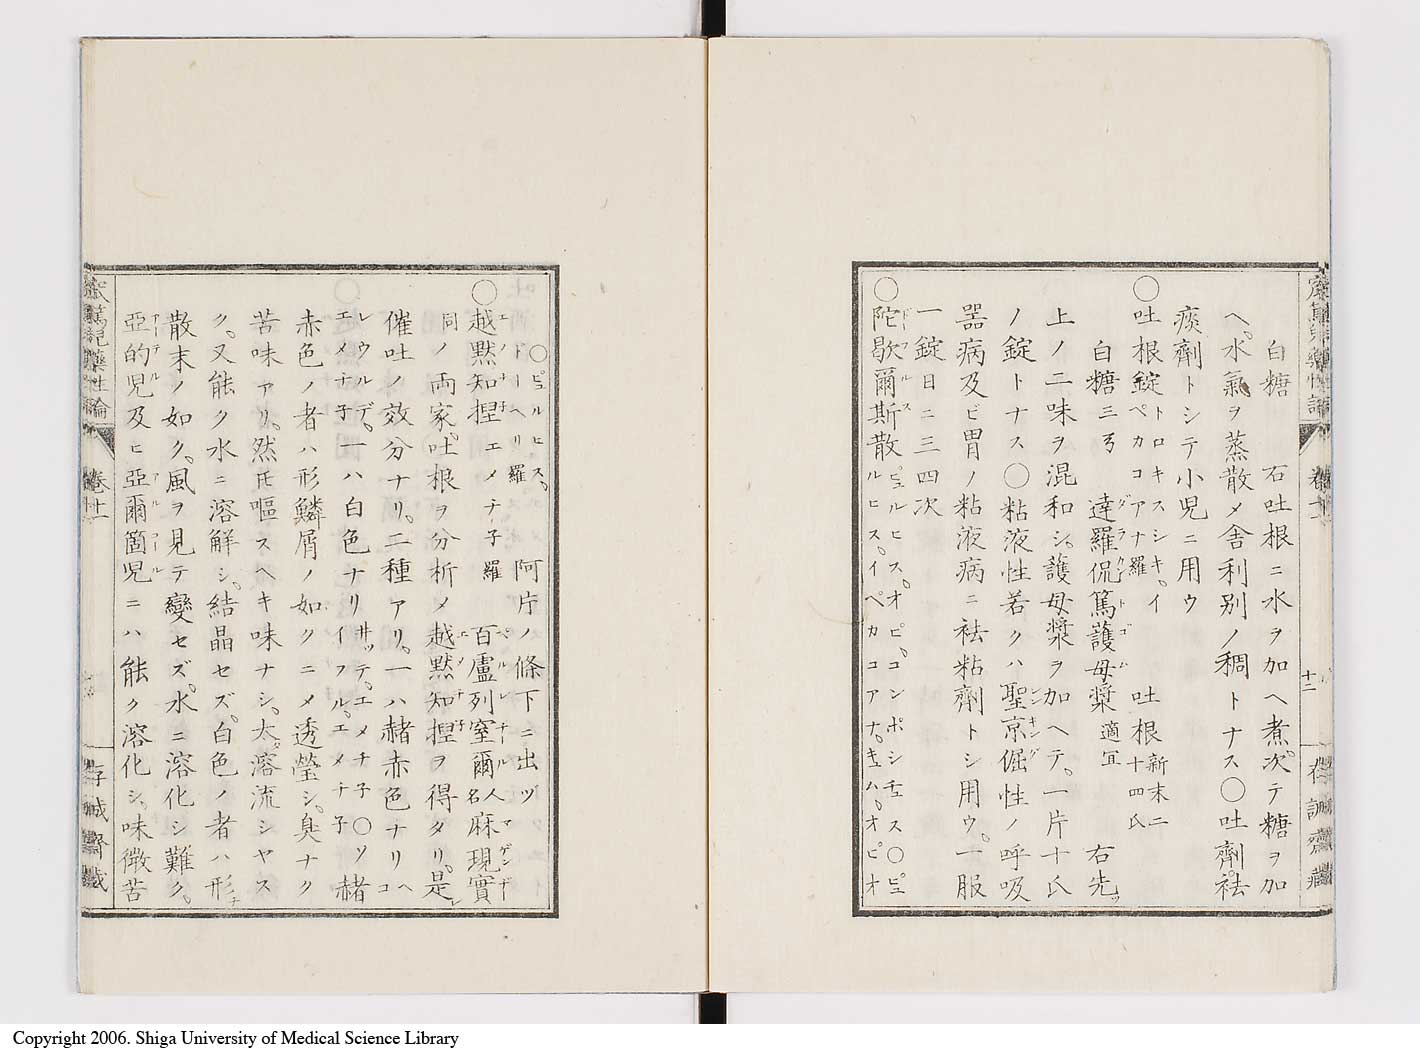 白糖　石吐根ニ水ヲ加ヘ煮。次テ糖ヲ加
ヘ。水氣ヲ蒸散メ舎利別ノ稠トナス〇吐劑。袪
痰劑トシテ小児ニ用ウ
〇吐根錠 トロキスシキ。イペカコアナ 羅 吐根 新末二十四氏
白糖三丐 達羅侃篤護母漿 適宜 右先ツ
上ノ二味ヲ混和シ。護母漿ヲ加ヘテ。一片十氏
ノ錠トナス〇粘液性若クハ聖京倔性ノ呼吸
器病及ビ胃ノ粘液病ニ袪粘劑トシ用ウ。一服
一錠日ニ三四次
〇陀歇爾斯散 ピュルヒス。オピ。コンポシチュス〇ピュルヒス。イペカコアナ。キュム。オピオ
十二
存誠齋藏
〇ピュルヒス。ドーヘリ 羅 阿片ノ條下ニ出ツ
〇越黙知揑 エメチ子 羅 百盧列窒爾 人名 麻現實
同ノ両家。吐根ヲ分析メ越黙知揑ヲ得タリ。是レ
催吐ノ效分ナリ。二種アリ。一ハ赭赤色ナリ
レウルデ。一ハ白色ナリ サッテ。エメチ子〇ソイフル。エメチ子 赭
赤色ノ者ハ形鱗屑ノ如クニメ透瑩シ。臭ナク
苦味アリ。然圧嘔スヘキ味ナシ。太溶流シヤス
ク。又能ク水ニ溶解シ。結晶セズ。白色ノ者ハ形チ
散末ノ如ク。風ヲ見テ變セズ。水ニ溶化シ難ク。
亞的児及ヒ亞爾箇児ニハ能ク溶化シ。味微苦
窊篤児藥性論
卷十一
存誠齋藏